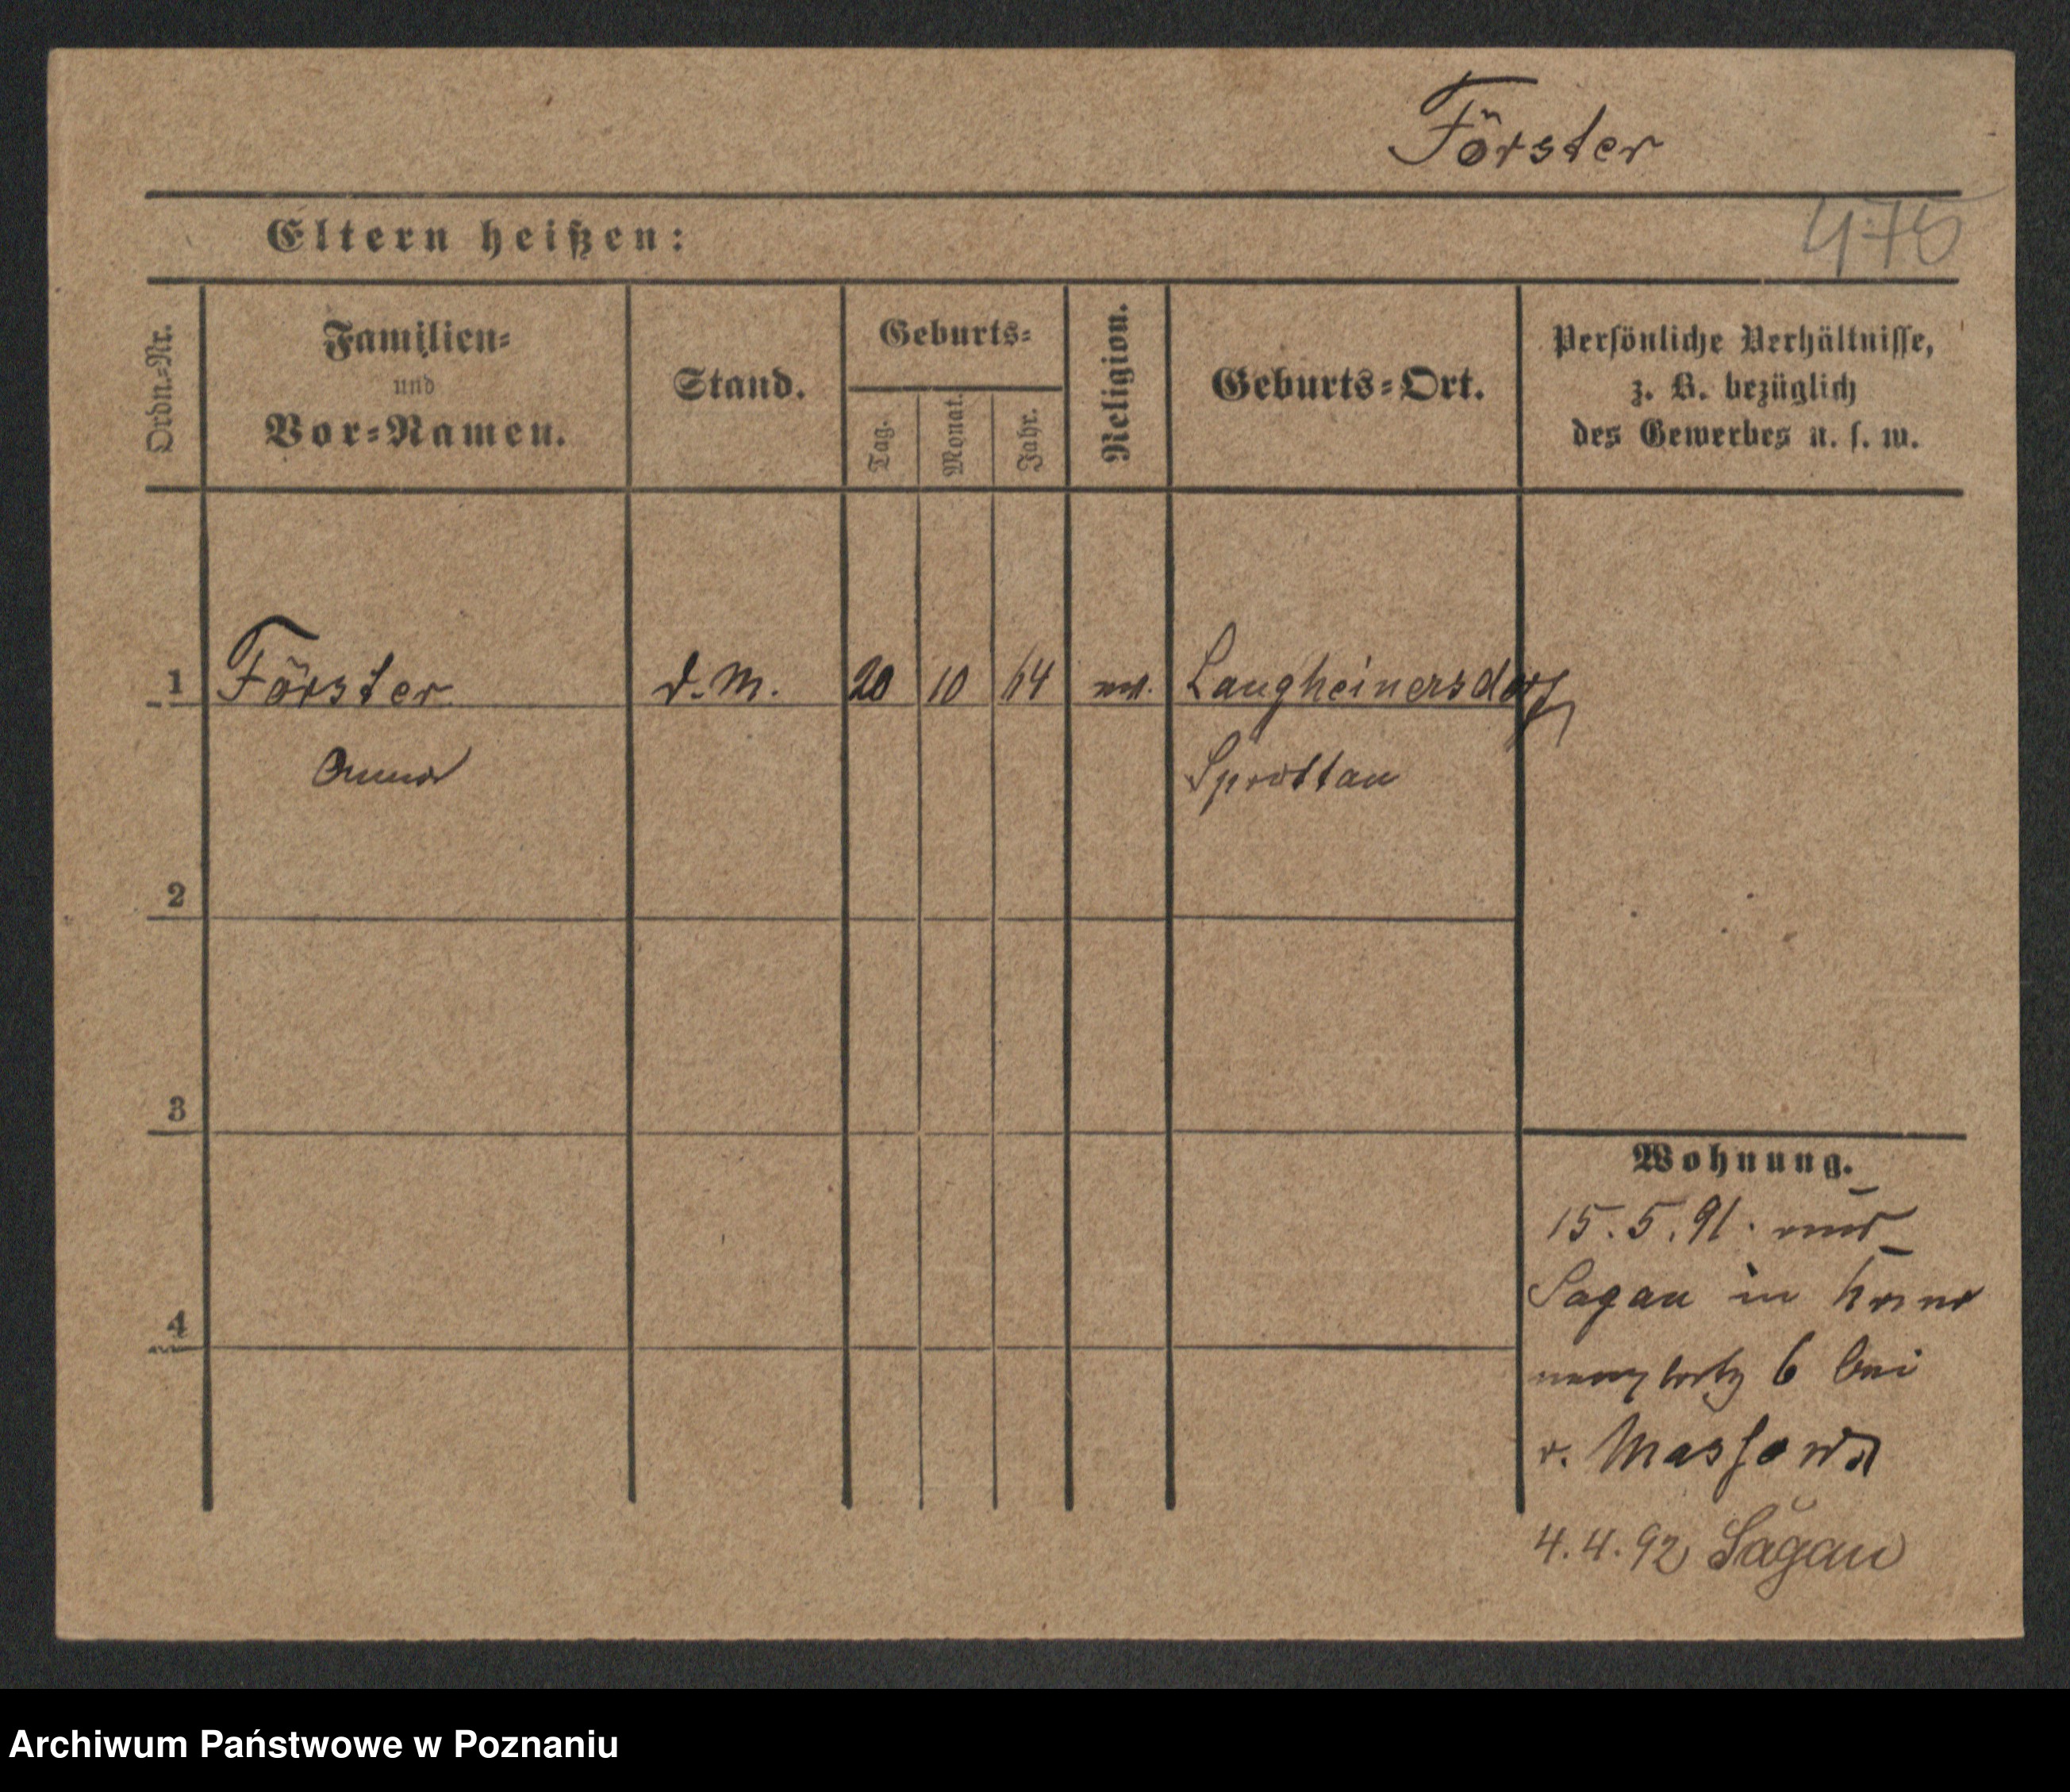 Förster
475
Eltern heißen:
Ordn.-Nr.
Familien- und Vor-Namen.
Stand.
Geburts-
Tag.
Monat.
Jahr.
Religion.
Geburts-Ort.
Persönliche Verhältnisse,
z. B. bezüglich
des Gewerbes u. s. w.
1 Förster d. M. 20 10 64 Langheinersdorf
Anna Sprottau
2
3
4
Wohnung.
15.5.91.
Sagan in
6 bei
v. Massow
4.4.92 Sagan
Archiwum Państwowe w Poznaniu